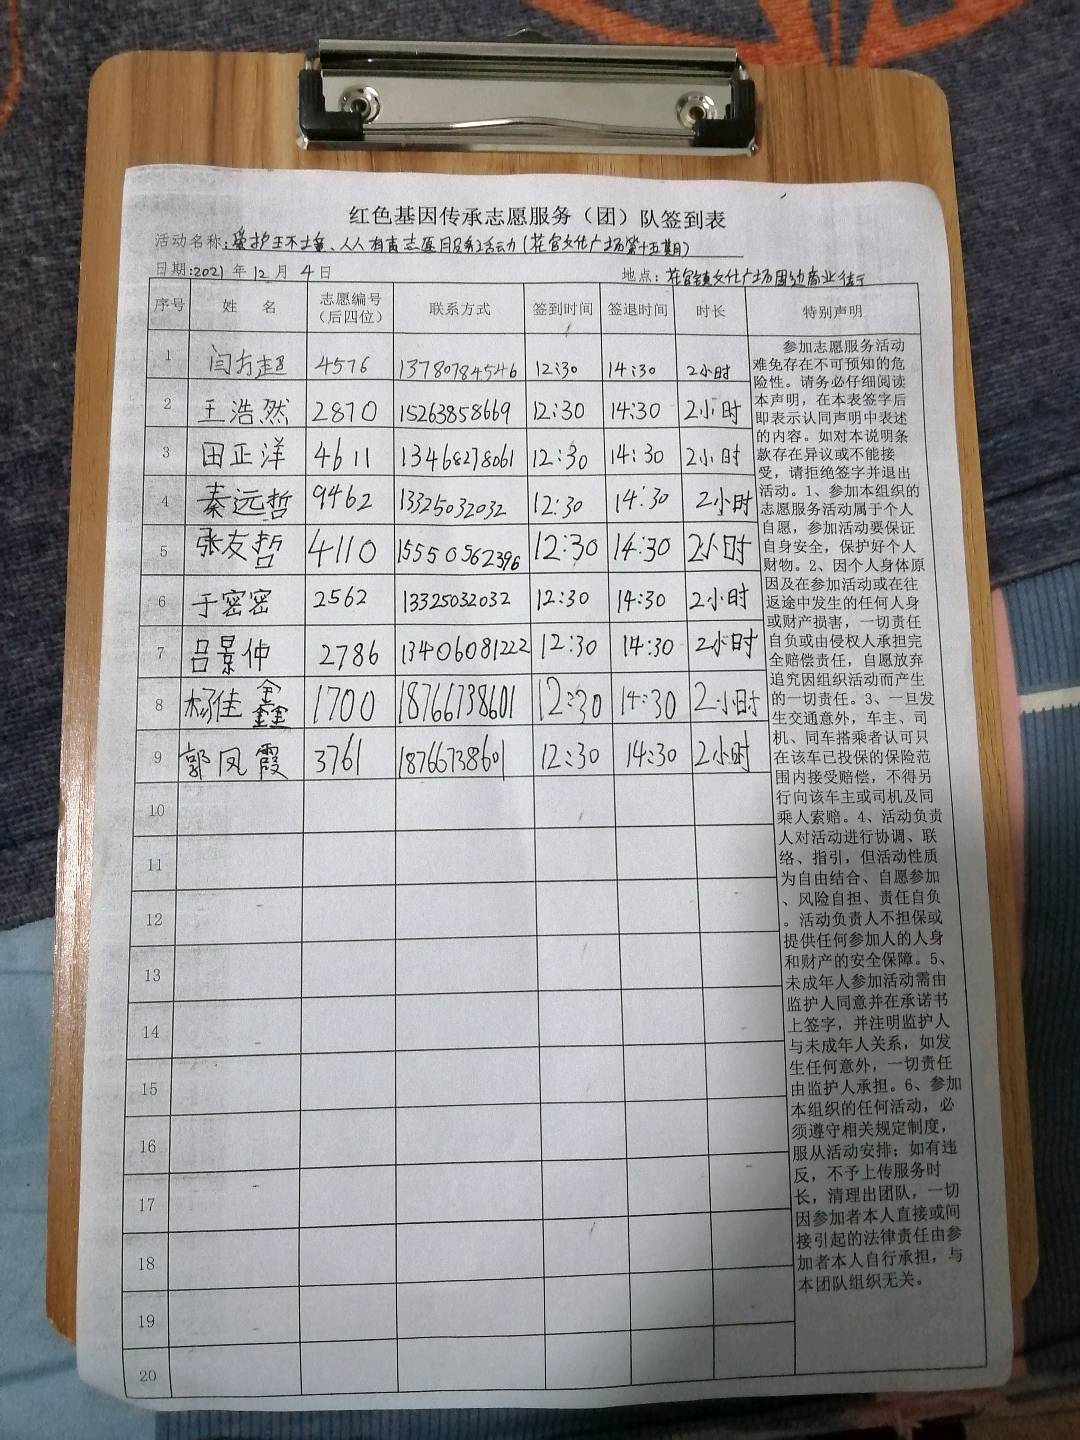 红色基因传承志愿服务（团）队签到表
活动名称:爱护环境、人人有责志愿服务活动(花官文化广场第十五期)
日期:2021年12月4日 地点:花官镇文化广场周边商业街
序号 姓 名 志愿编号（后四位） 联系方式 签到时间 签退时间 时长 特别声明
1 闫方超 4576 13780784546 12:30 14:30 2小时
2 王浩然 2870 15263858669 12:30 14:30 2小时
3 田正洋 4611 13468278061 12:30 14:30 2小时
4 秦远哲 9462 13325032032 12:30 14:30 2小时
5 张友哲 4110 15550562396 12:30 14:30 2小时
6 于密密 2562 13325032032 12:30 14:30 2小时
7 吕景伸 2786 13406081222 12:30 14:30 2小时
8 杨佳鑫 1700 18766738601 12:30 14:30 2小时
9 郭凤霞 3761 18766738601 12:30 14:30 2小时
10
11
12
13
14
15
16
17
18
19
20
参加志愿服务活动
难免存在不可预知的危
险性。请务必仔细阅读
本声明，在本表签字后
即表示认同声明中表述
的内容。如对本说明条
款存在异议或不能接
受，请拒绝签字并退出
活动。1、参加本组织的
志愿服务活动属于个人
自愿，参加活动要保证
自身安全，保护好个人
财物。2、因个人身体原
因及在参加活动或在往
返途中发生的任何人身
或财产损害，一切责任
自负或由侵权人承担完
全赔偿责任，自愿放弃
追究因组织活动而产生
的一切责任。3、一旦发
生交通意外，车主、司
机、同车搭乘者认可只
在该车已投保的保险范
围内接受赔偿，不得另
行向该车主或司机及同
乘人索赔。4、活动负责
人对活动进行协调、联
络、指引，但活动性质
为自由结合、自愿参加
、风险自担、责任自负
。活动负责人不担保或
提供任何参加人的人身
和财产的安全保障。5、
未成年人参加活动需由
监护人同意并在承诺书
上签字，并注明监护人
与未成年人关系，如发
生任何意外，一切责任
由监护人承担。6、参加
本组织的任何活动，必
须遵守相关规定制度，
服从活动安排；如有违
反，不予上传服务时
长，清理出团队，一切
因参加者本人直接或间
接引起的法律责任由参
加者本人自行承担，与
本团队组织无关。